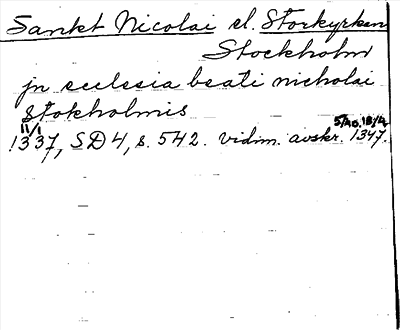 Sankt Nicolai el. Storkyrkan
Stockholm
jn ecclesia beati nicholai
stokholmis
11/1 5/10, 18/12
1337, SD 4, s. 542. vidim. avskr. 1347.